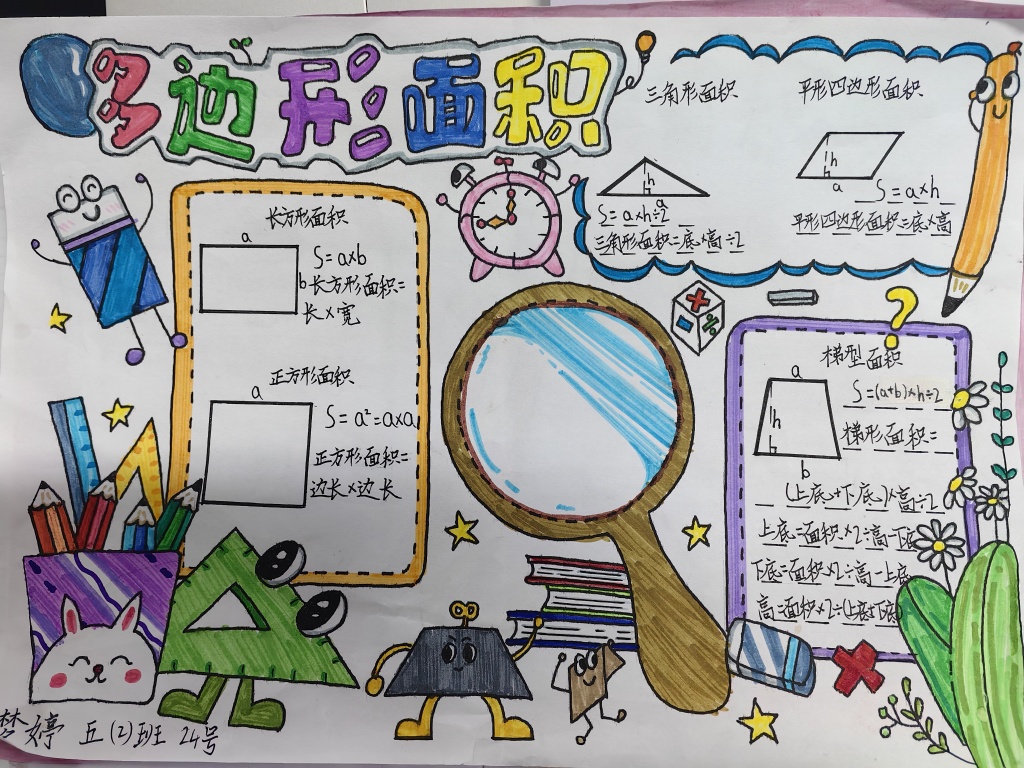 多边形面积
三角形面积
h
a
S=a×h÷2
三角形面积=底×高÷2
平形四边形面积
h
a
S=a×h
平形四边形面积=底×高
长方形面积
a
S=a×b
b 长方形面积=
长×宽
正方形面积
a
S=a²=a×a
正方形面积=
边长×边长
?
梯型面积
a
S=(a+b)×h÷2
h
梯形面积=
b
(上底+下底)×高÷2
上底=面积×2÷高-下底
下底=面积×2÷高-上底
高=面积×2÷(上底+下底)
梦婷 五(2)班 24号